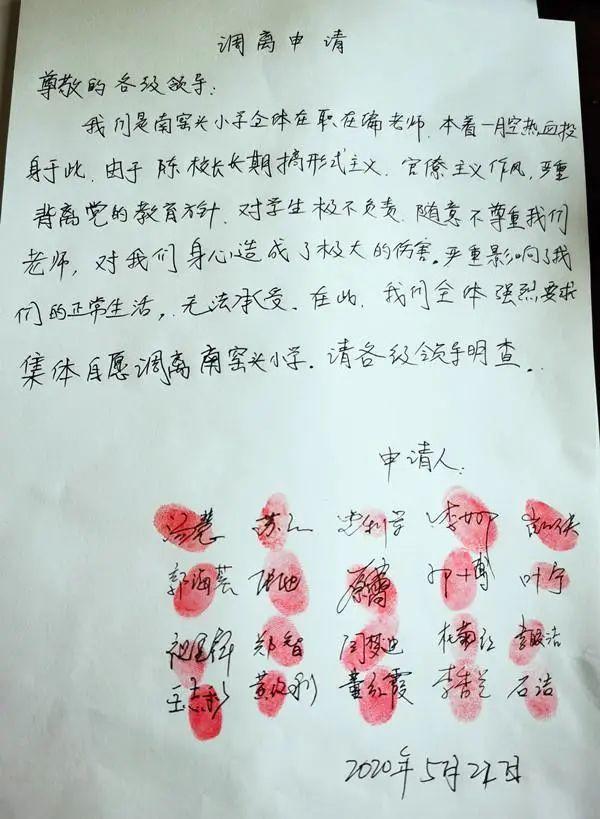 调离申请
尊敬的各级领导:
我们是南窑头小学全体在职在编老师.本着一腔热血投
身于此.由于陈校长长期搞形式主义.官僚主义作风,严重
背离党的教育方针.对学生极不负责.随意不尊重我们
老师,对我们身心造成了极大的伤害。严重影响了我
们的正常生活,无法承受.在此.我们全体强烈要求
集体自愿调离南窑头小学.请各级领导明查。
申请人:
郭海燕 叶宁
郑智 闫梦迪
王志彩 董红霞 李杏兰 石洁
2020年5月21日